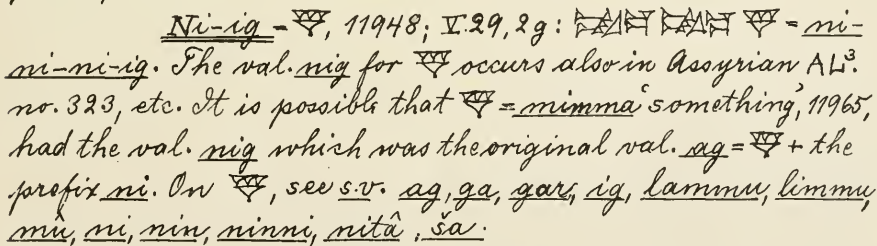 Ni-ig = 𒃻, 11948; V. 29, 2g: 𒃻 = ni-
ni-ni-ig. The val. nig for 𒃻 occurs also in Assyrian AL³.
no. 323, etc. It is possible that 𒃻 = mimma 'something', 11965,
had the val. nig which was the original val. ag = 𒃻 + the
prefix ni. On 𒃻, see s.v. ag, ga, gar, ig, lammu, limmu,
mû, ni, nin, ninni, nitâ, ša.